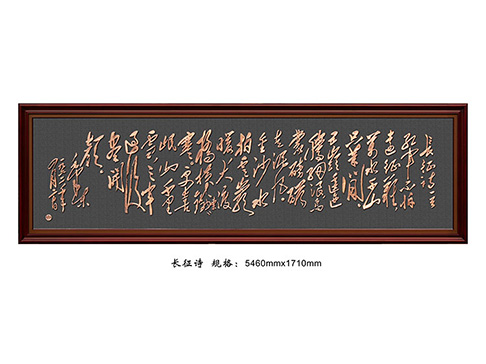 长征诗一首
红军不怕
远征难
万水千山
只等闲
五岭逶迤
腾细浪乌
蒙磅礴
走泥丸
金沙水
拍云崖
暖大渡
桥横铁索
寒更喜
岷山千里
雪三军
过后
尽开
颜
毛泽东
长征诗 规格：5460mmx1710mm